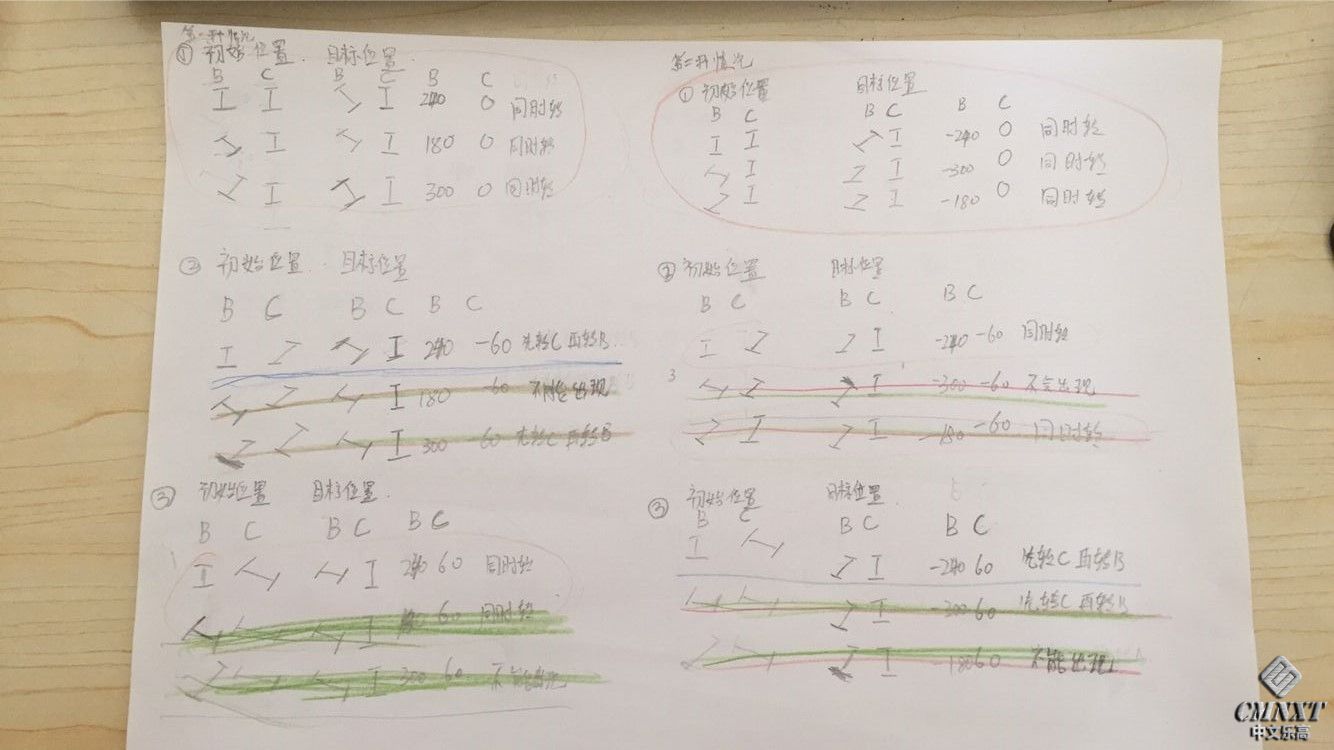 第一种情况
① 初始位置. 目标位置.
B C B C B C
I I I 240 0 同时转
I 180 0 同时转
I I 300 0 同时转
② 初始位置. 目标位置
B C B C B C
I I 240 -60 先转C再转B
I 180 -60 出现
I 300 -60 先转C再转B
③ 初始位置 目标位置.
B C B C B C
I I 240 60 同时转
I 60 同时转
I 300 60 不
第二种情况
① 初始位置 目标位置
B C B C B C
I I I -240 0 同时转
I I -300 0 同时转
I I -180 0 同时转
② 初始位置 目标位置
B C B C B C
I I -240 -60 同时转
3 I -300 -60 不会出现
I -180 -60 同时转
③ 初始位置 目标位置.
B C B C B C
I I -240 60 先转C再转B
I -300 60 先转C再转B
I -180 60 不能出现
CMNXT
中文乐高